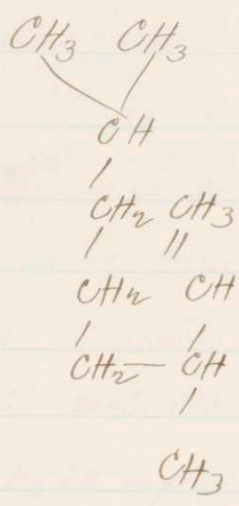 CH3 CH3
CH
CH2 CH3
CH2 CH
CH2 — CH
CH3